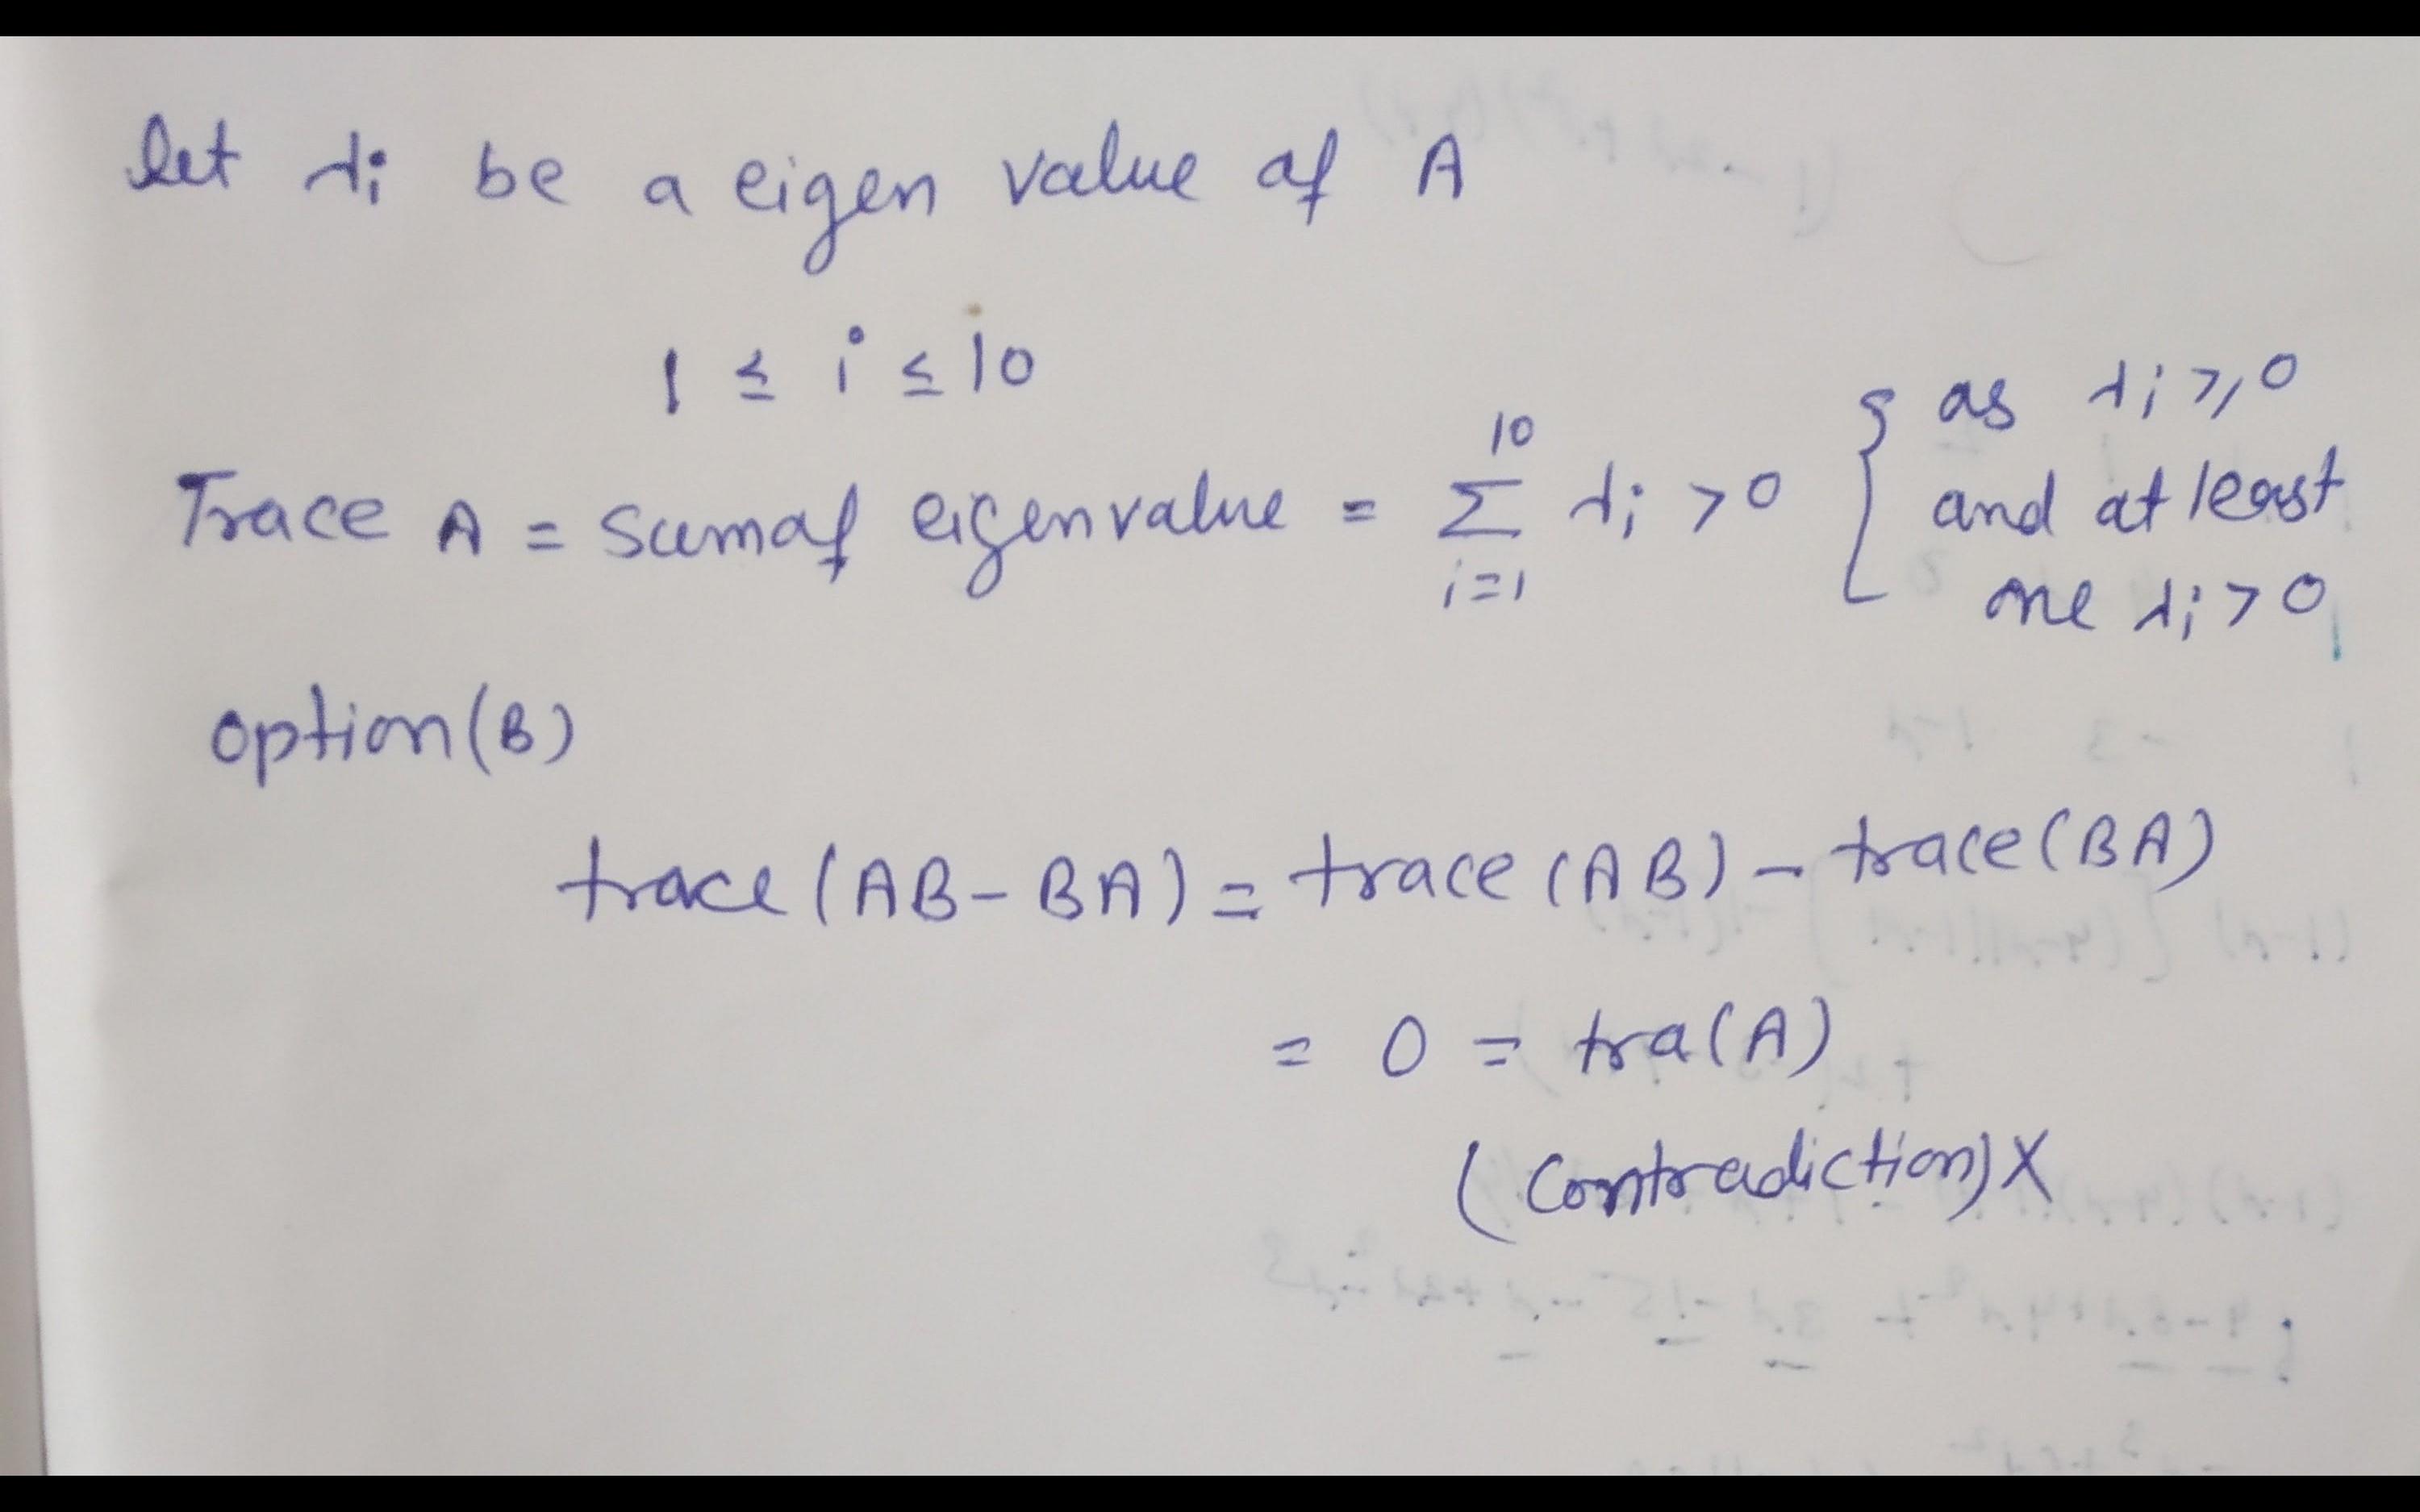 let λi be a eigen value of A
1 ≤ i ≤ 10
Trace A = sum of eigenvalue = ∑_{i=1}^{10} λi > 0 { as λi ≥ 0 and at least one λi > 0
option (B)
trace (AB - BA) = trace (AB) - trace (BA)
= 0 = tra(A)
(Contradiction) X